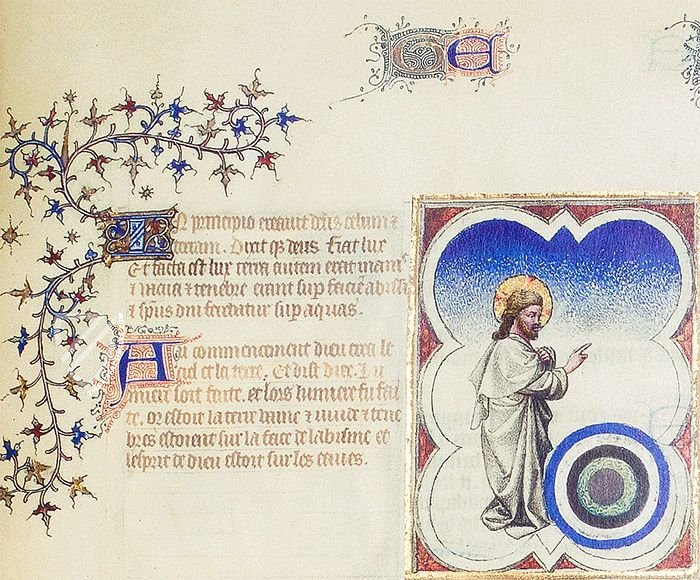 G E
In principio creavit deus celum et
terram. Dixit que deus fiat lux
Et facta est lux terra autem erat inanis
et vacua et tenebre erant sup faciē abissi
et spūs dni ferebatur sup aquas.
Au commencement dieu crea le
ciel et la terre. Et dist dieu. Lu
miere soit faite. et lors lumiere fu fai
te. or estoit la terre vaine et vuide et tene
bres estoient sur la face de labisme et
lesprit de dieu estoit sur les eaues.